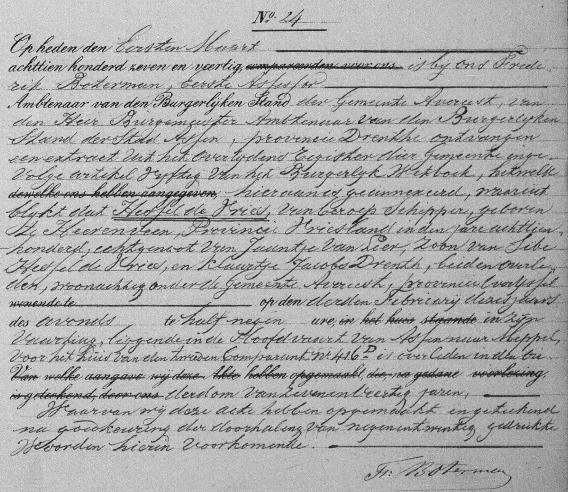 No. 24
Op heden den Eersten Maart
achttien honderd zeven en veertig, compareerden voor ons is by ons Frede-
rik Boterman, Eerste Assessor
Ambtenaar van den Burgerlyken Stand der Gemeente Avereest, van
den Heer Burgemeester Ambtenaar van den Burgerlyken
Stand der Stad Assen, provincie Drenthe ontvangen
een extract uit het overlydens register dier gemeente inge-
volge artikel vyftig van het Burgerlyk Wetboek, hetwelk
dewelke ons hebben aangegeven, hieraan is geannexeerd, waaruit
blykt dat Hessel de Vries, van beroep Schipper, geboren
te Heerenveen, Provincie Vriesland in den jare achttien-
honderd, echtgenoot van Jeuntje van Lier, Zoon van Sibe
Hessel de Vries, en Klaartje Jacobs Drenth, beiden overle-
den, woonachtig onder de Gemeente Avereest, provincie Overyssel
wonende te op den derden Februarij dezes jaars
des avonds te half negen ure, in het huis staande in zyn
Vaartuig, liggende in de Hoofdvaart van Assen naar Meppel,
voor het huis van den tweeden Comparant No 416 D is overleden in den ou-
Van welke aangave wij deze Akte hebben opgemaakt, die, na gedane voorlezing,
is geteekend, door ons derdom van zevenenveertig jaren,
Waarvan wy deze acte hebben opgemaakt en geteekend
na goedkeuring der doorhaling van negenentwintig gedrukte
Woorden hierin voorkomende.
Fr. Boterman